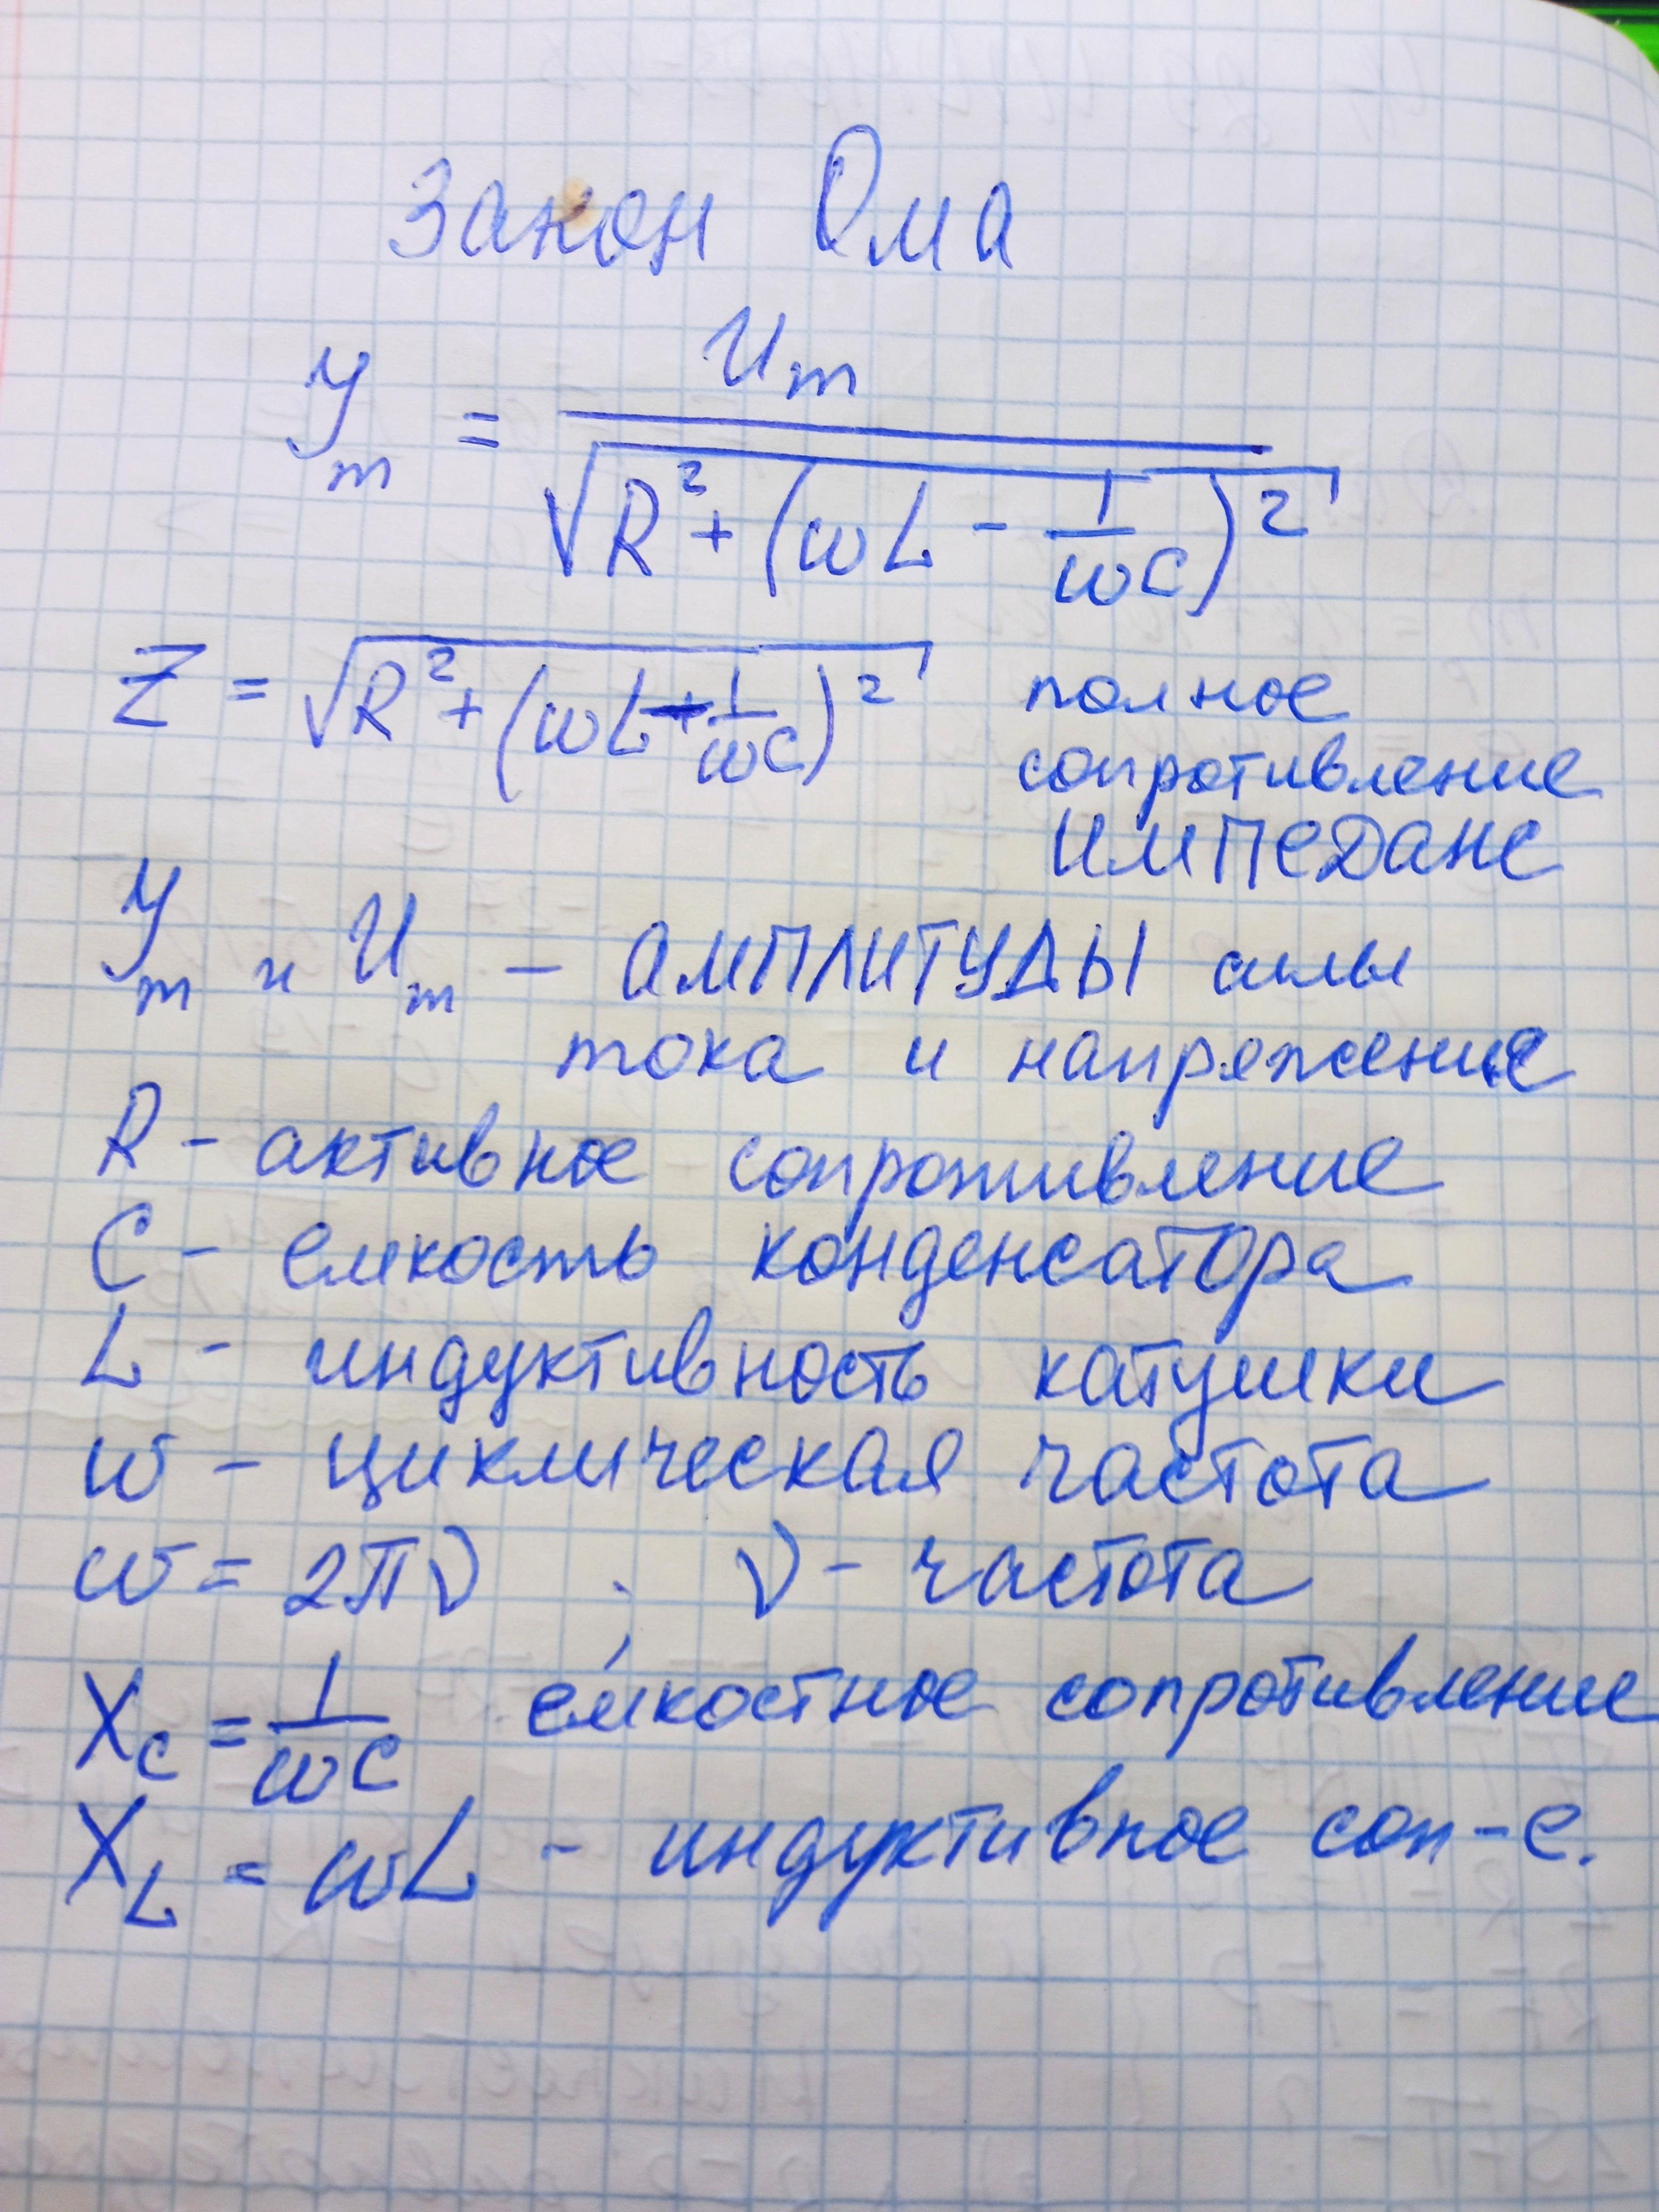 Закон Ома
У_m = U_m / √(R² + (ωL - 1/ωC)²)
Z = √(R² + (ωL - 1/ωC)²) полное
сопротивление
ИМПЕДАНС
У_m и U_m – АМПЛИТУДЫ силы
тока и напряжение
R - активное сопротивление
C - емкость конденсатора
L - индуктивность катушки
ω - циклическая частота
ω = 2πν . ν - частота
X_C = 1/ωC ёмкостное сопротивление
X_L = ωL - индуктивное соп-е.